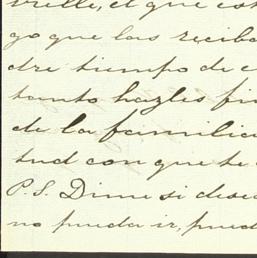 velle, el que est
go que las reciba
dre tiempo de c
tanto hazles fin
de la familia
tud con que te
P.S. Dime si dese
no pueda ir, pued